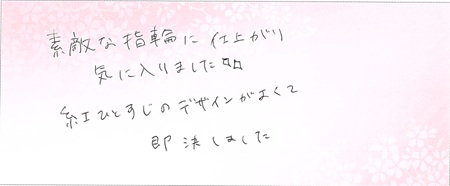 素敵な指輪に仕上がり
気に入りました
紅ひとすじのデザインがよくて
即決しました